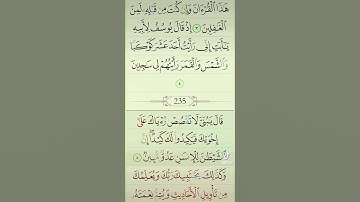 هَٰذَا الْقُرْءَانَ وَإِن كُنتَ مِن قَبْلِهِ لَمِنَ
الْغَٰفِلِينَ ٣ إِذْ قَالَ يُوسُفُ لِأَبِيهِ
يَٰٓأَبَتِ إِنِّي رَأَيْتُ أَحَدَ عَشَرَ كَوْكَبًا
وَالشَّمْسَ وَالْقَمَرَ رَأَيْتُهُمْ لِي سَٰجِدِينَ
٤
235
قَالَ يَٰبُنَيَّ لَا تَقْصُصْ رُءْيَاكَ عَلَىٰٓ
إِخْوَتِكَ فَيَكِيدُوا۟ لَكَ كَيْدًا إِنَّ
الشَّيْطَٰنَ لِلْإِنسَٰنِ عَدُوٌّ مُّبِينٌ ٥
وَكَذَٰلِكَ يَجْتَبِيكَ رَبُّكَ وَيُعَلِّمُكَ
مِن تَأْوِيلِ الْأَحَادِيثِ وَيُتِمُّ نِعْمَتَهُۥ